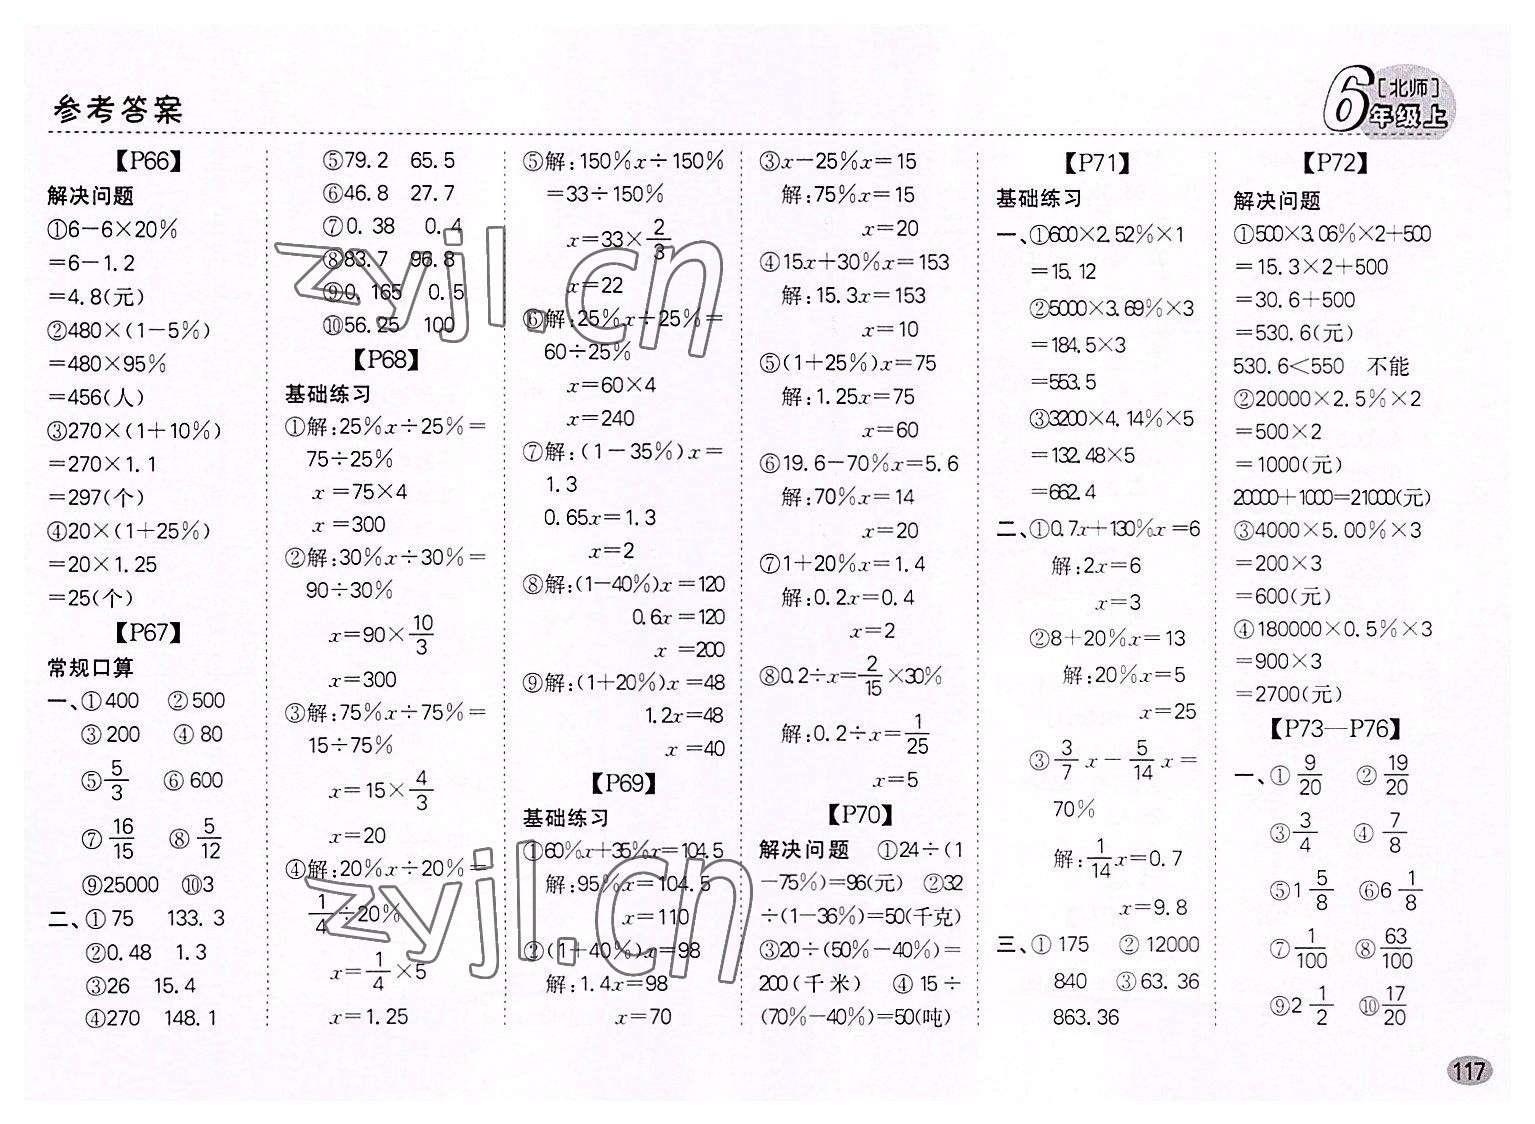 参考答案
6[北师]
年级上
【P66】
解决问题
①6-6×20%
=6-1.2
=4.8(元)
②480×(1-5%)
=480×95%
=456(人)
③270×(1+10%)
=270×1.1
=297(个)
④20×(1+25%)
=20×1.25
=25(个)
【P67】
常规口算
一、①400 ②500
③200 ④80
⑤5/3 ⑥600
⑦16/15 ⑧5/12
⑨25000 ⑩3
二、①75 133.3
②0.48 1.3
③26 15.4
④270 148.1
⑤79.2 65.5
⑥46.8 27.7
⑦0.38 0.4
⑧83.7 96.8
⑨0.165 0.5
⑩56.25 100
【P68】
基础练习
①解:25%x÷25%=
75÷25%
x=75×4
x=300
②解:30%x÷30%=
90÷30%
x=90×10/3
x=300
③解:75%x÷75%=
15÷75%
x=15×4/3
x=20
④解:20%x÷20%=
1/4÷20%
x=1/4×5
x=1.25
⑤解:150%x÷150%
=33÷150%
x=33×2/3
x=22
⑥解:25%x÷25%=
60÷25%
x=60×4
x=240
⑦解:(1-35%)x=
1.3
0.65x=1.3
x=2
⑧解:(1-40%)x=120
0.6x=120
x=200
⑨解:(1+20%)x=48
1.2x=48
x=40
【P69】
基础练习
①60%x+35%x=104.5
解:95%x=104.5
x=110
②(1+40%)x=98
解:1.4x=98
x=70
③x-25%x=15
解:75%x=15
x=20
④15x+30%x=153
解:15.3x=153
x=10
⑤(1+25%)x=75
解:1.25x=75
x=60
⑥19.6-70%x=5.6
解:70%x=14
x=20
⑦1+20%x=1.4
解:0.2x=0.4
x=2
⑧0.2÷x=2/15×30%
解:0.2÷x=1/25
x=5
【P70】
解决问题 ①24÷(1
-75%)=96(元) ②32
÷(1-36%)=50(千克)
③20÷(50%-40%)=
200(千米) ④15÷
(70%-40%)=50(吨)
【P71】
基础练习
一、①600×2.52%×1
=15.12
②5000×3.69%×3
=184.5×3
=553.5
③3200×4.14%×5
=132.48×5
=662.4
二、①0.7x+130%x=6
解:2x=6
x=3
②8+20%x=13
解:20%x=5
x=25
③3/7x-5/14x=
70%
解:1/14x=0.7
x=9.8
三、①175 ②12000
840 ③63.36
863.36
【P72】
解决问题
①500×3.06%×2+500
=15.3×2+500
=30.6+500
=530.6(元)
530.6<550 不能
②20000×2.5%×2
=500×2
=1000(元)
20000+1000=21000(元)
③4000×5.00%×3
=200×3
=600(元)
④180000×0.5%×3
=900×3
=2700(元)
【P73—P76】
一、①9/20 ②19/20
③3/4 ④7/8
⑤1 5/8 ⑥6 1/8
⑦1/100 ⑧63/100
⑨2 1/2 ⑩17/20
117
zyjl.cn
zyjl.cn